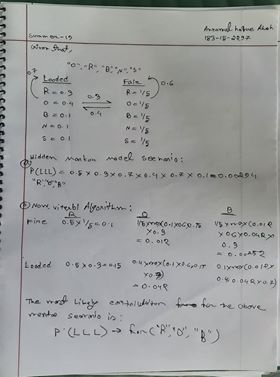 Summer-19
183-15-2297
Given that,
"O", "R", "B", "N", "S"
0.7
Loaded
Fair
0.6
R = 0.3
0.3
R = 1/5
O = 0.4
0.4
O = 1/5
B = 0.1
B = 1/5
N = 0.1
N = 1/5
S = 0.1
S = 1/5
Hidden markov model scenario:
P(LLL) = 0.5 x 0.3 x 0.7 x 0.4 x 0.7 x 0.1 = 0.00294
"R", "O", "B"
Now viterbi Algorithm:
R
O
B
0.5 x 1/5 = 0.1
1/5 max(0.1x0.6, 0.15
x 0.3)
= 0.012
1/5 max(0.012
x0.6 x 0.042x
0.3
= 0.00252
Loaded
0.5 x 0.3 = 0.15
0.4 max(0.1x0.4, 0.15
x 0.7)
= 0.042
0.1 max(0.012x
The most likely for the above
scenario is:
P(LLL) → for ("R", "O", "B")